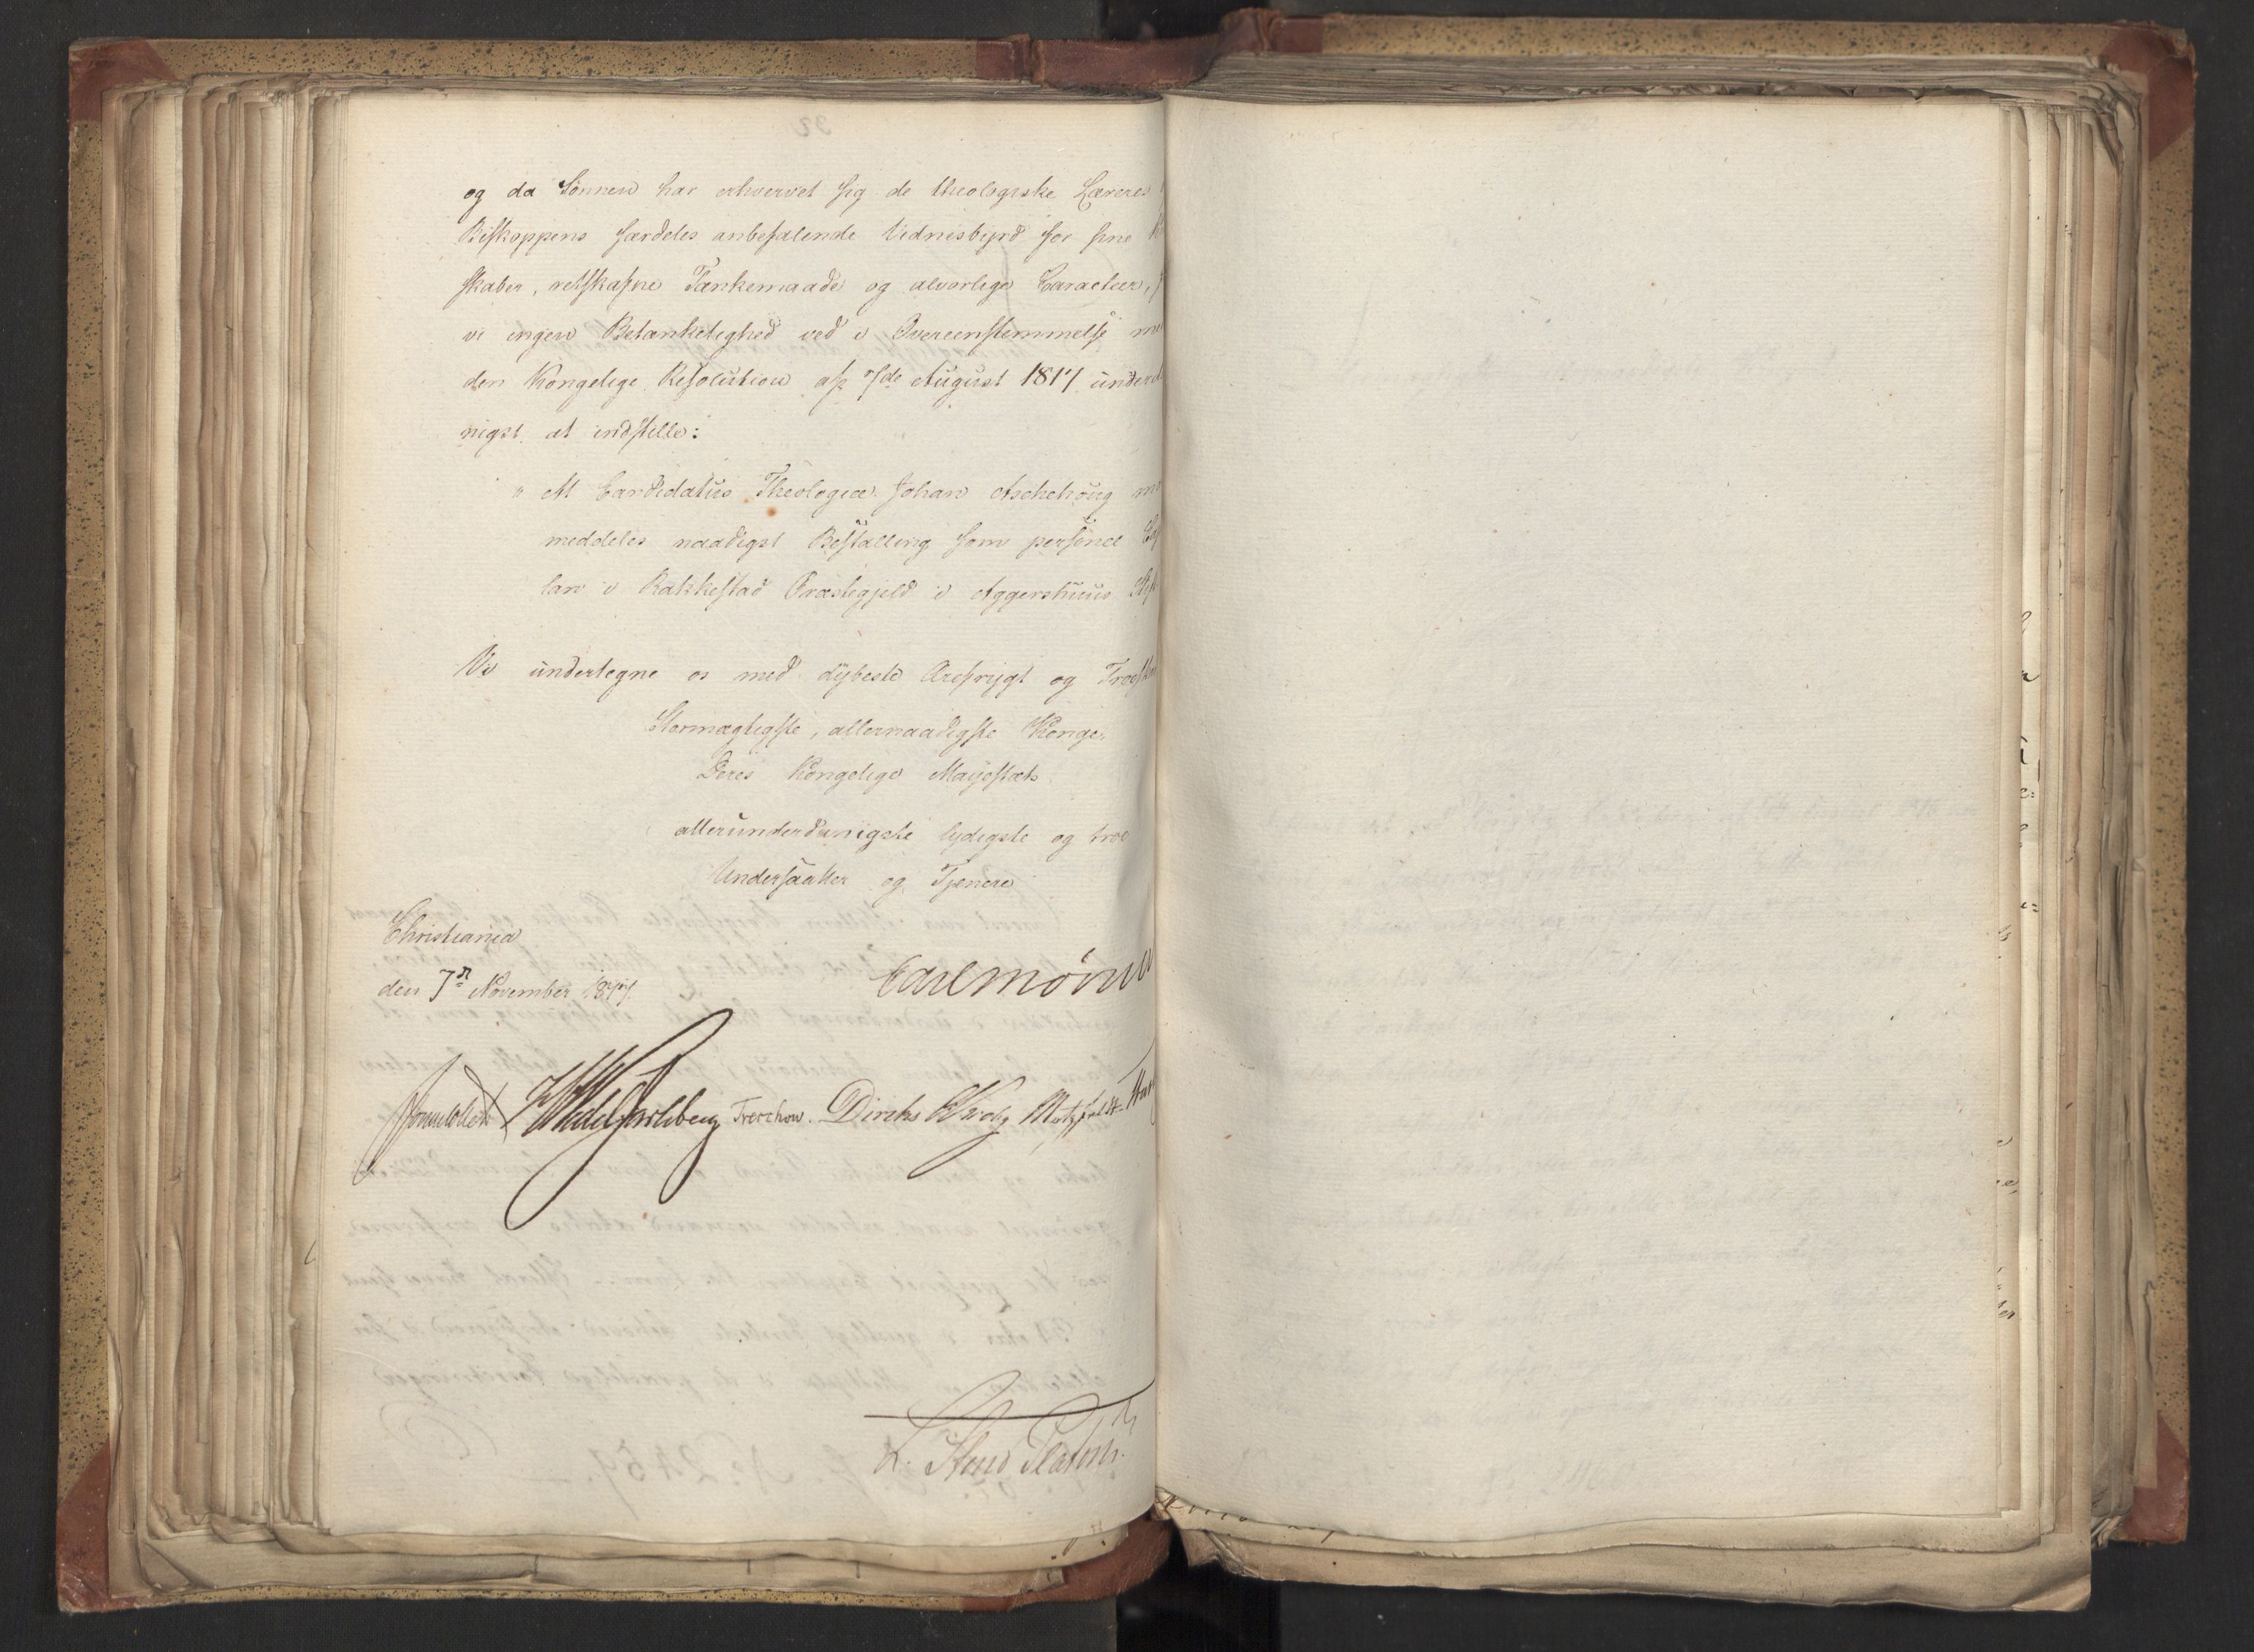 og da Sønnen har erhvervet sig de theologiske Læreres
Biskoppens særdeles anbefalende Vidnesbyrd for sine
skaber, retskafne Tænkemaade og alvorlige Caracteer,
vi ingen Betænkelighed ved i Overeensstemmelse
den Kongelige Resolution af 7de August 1817 under
nigst at indstille:
" At Candidatus Theologiæ Johan Aschehoug
meddeles naadigst Bestalling som personel
lan i Rakkestad Præstegjeld i Aggershuus
Vi undertegne os med dybeste Ærefrygt og Troeska
Stormægtigste, allernaadigste Konge.
Deres Kongelige Majestæts
allerunderdanigste lydigste og troe
Undersaatter og Tjenere
Christiania
den 7n November 1817
Carl Mörner
Sommerhielm HWedelJarlsberg Treschow. Diriks Krohg Motzfeldt